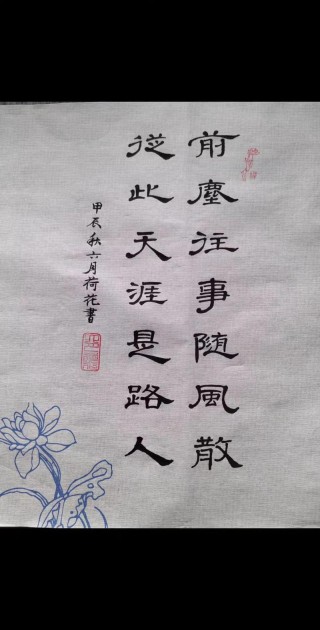 前塵往事随風散
從此天涯是路人
甲辰秋六月荷花書